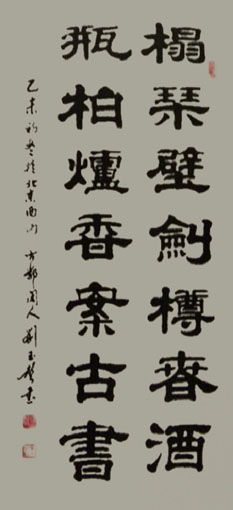 榻琹壁劍樽春酒
瓶柏爐香案古書
乙未初冬於北京西山 古都閑人 劉玉